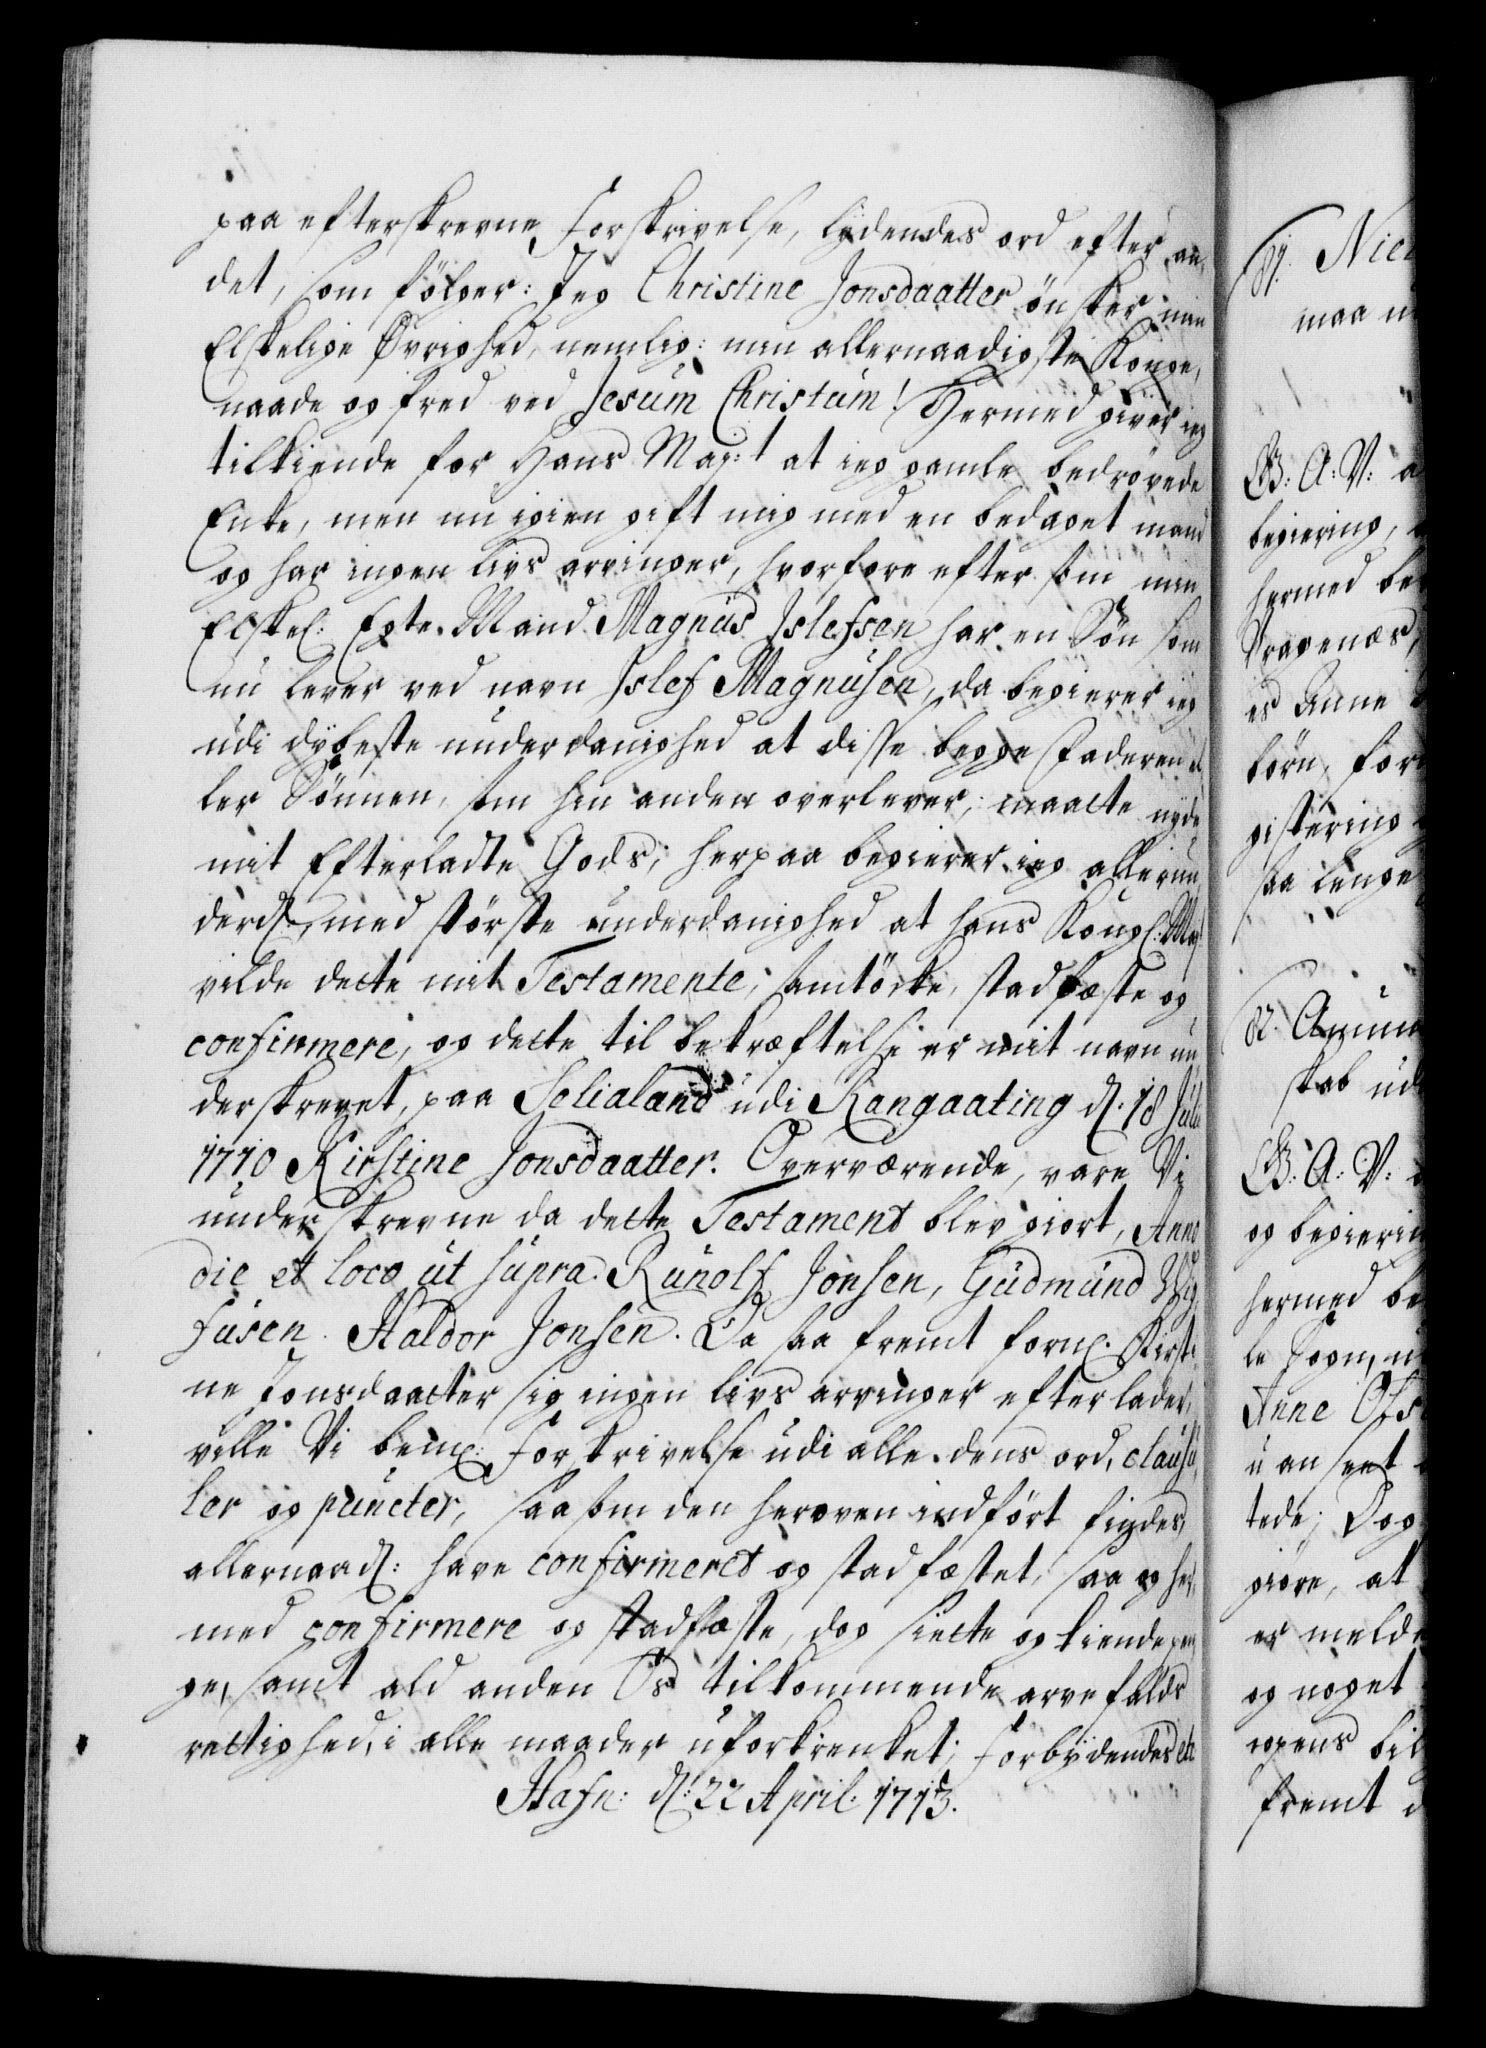 paa efterskrevne Forskrivelse, lydendes ord efter an,
det, som fölger: Jeg Christine Jonsdaatter önsker min
Elskelige Øvrighed, nemlig: min allernaadigste Konge,
naade og fred ved Jesum Christum! Hermed giver ieg
tilkiende for Hans Maj:t at ieg gamle bedrövede
Enke, men nu igien gift mig med en bedaget mand
og har ingen livs arvinger, hvorfore efter som min
Elskel: Egte Mand Magnus Islefsen har en Sön som
nu lever ved navn Islef Magnusen, da begierer ieg
udi dybeste underdanighed at disse begge Faderen el
ler Sönnen, som hin anden overlever, maatte nyde
mit Efterladte Gods; herpaa begierer ieg allerun
derd: med störste underdanighed at hans Kongl: Maj:
vilde dette mit Testamente, samtöcke, stadfæste og
confirmere, og dette til bekræftelse er mit navn un
derskrevet, paa Selialand udi Rangaating d. 18 Julii
1710 Kirstine Jonsdaatter. Overværende, vare Vi
underskrevne da dette Testament blev giort, Anno
die et loco ut supra. Runolf Jonsen, Gudmund Wig,
fusen. Haldor Jonsen. Da saa fremt forne. Kirsti
ne Jonsdaatter sig ingen livs arvinger efterlader,
ville Vi bemte: Forskrivelse udi alle dens ord, clausu,
ler og puncter, saasom den heroven indfört findes,
allernaad: have confirmeret og stadfæstet, saa og her,
med confirmere og stadfæste, dog siette og tiende pen
ge, samt ald anden Os tilkommende arvefalds
rettighed, i alle maader uforkrenket; Forbydendes etc
Hafn: d: 22 April. 1713.

Nic
maa
G: A: V: a
begiering,
hermed be
Anne
börn, for
gistering
saa lenge
skab ud
G: A: V:
og begiering
hermed be
le Sogn,
Anne Ols
u anseet
tede; Dog
giöre, at
er melde
og noget
ogens bil
fremt d